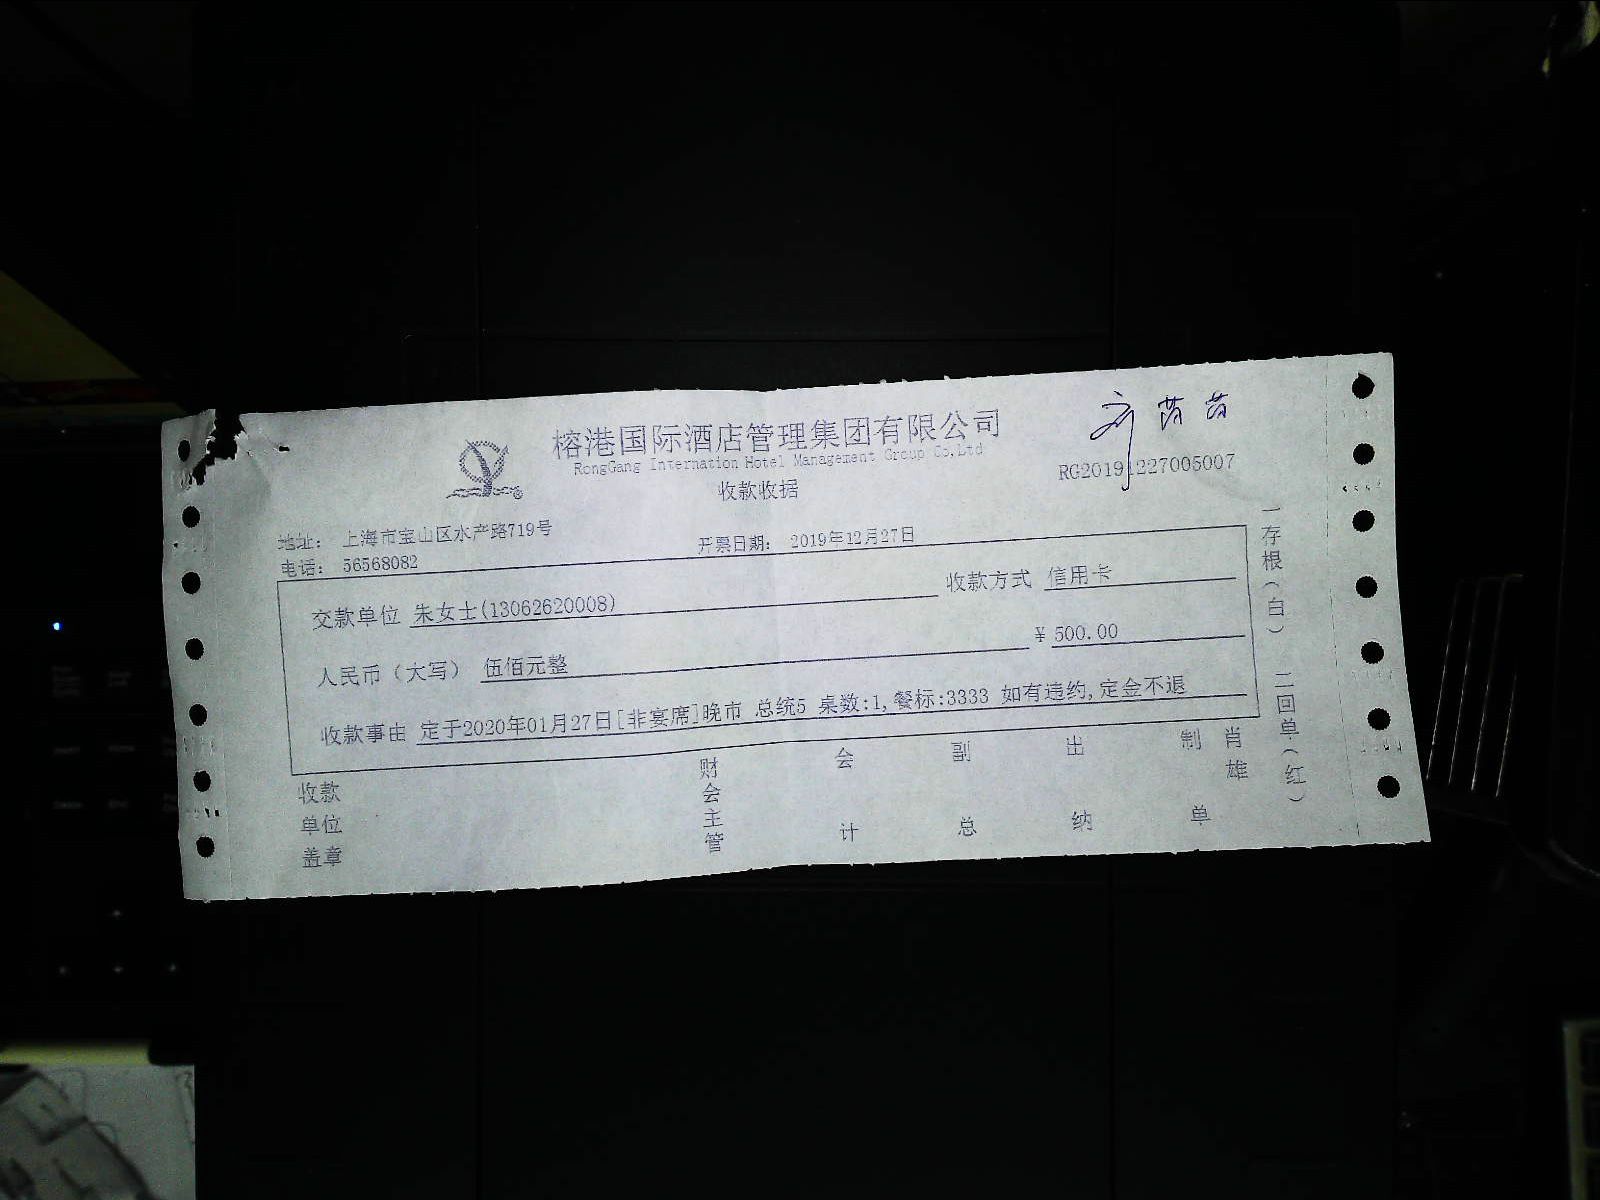 榕港国际酒店管理集团有限公司
RongGang Internation Hotel Management Group Co,Ltd
收款收据
RG20191227005007
地址： 上海市宝山区水产路719号
电话： 56568082
开票日期： 2019年12月27日
交款单位 朱女士(13062620008)
收款方式 信用卡
人民币（大写） 伍佰元整
¥ 500.00
收款事由 定于2020年01月27日[非宴席]晚市 总统5 桌数:1,餐标:3333 如有违约,定金不退
收款单位盖章
财会主管
会计
副总
出纳
制单
肖雄
一存根（白） 二回单（红）